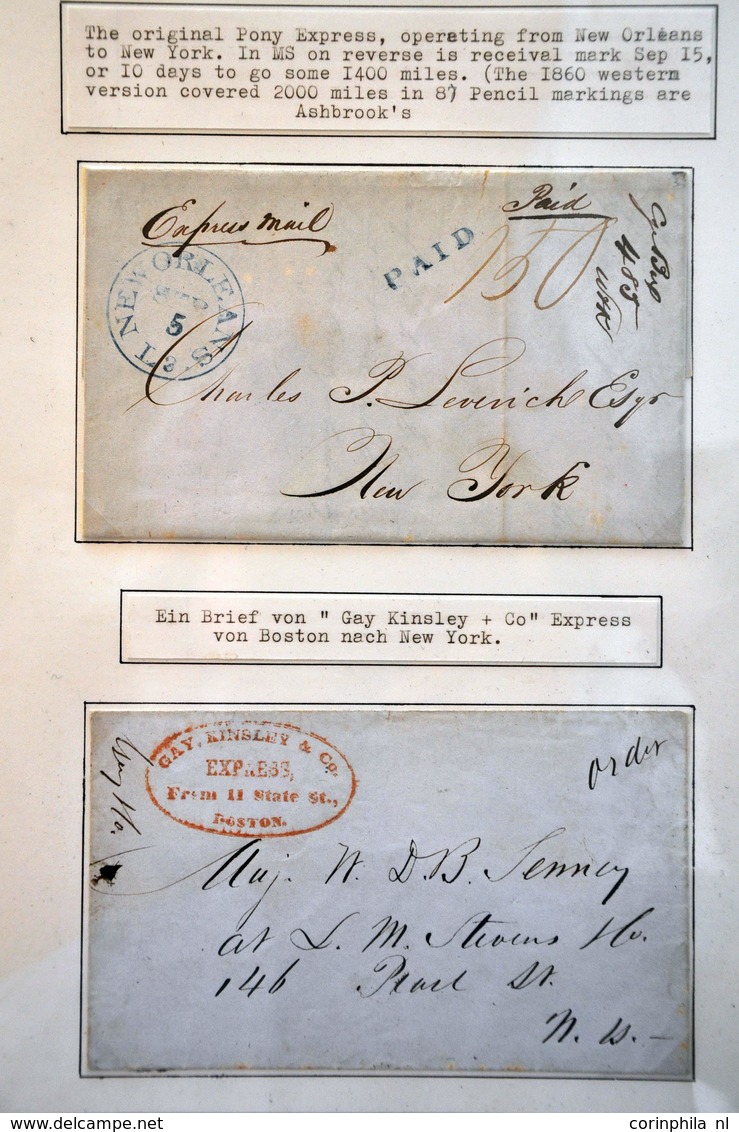 The original Pony Express, operating from New Orleans
to New York. In MS on reverse is receival mark Sep I5,
or IO days to go some I400 miles. (The I860 western
version covered 2000 miles in 8) Pencil markings are
Ashbrook's
Express Mail
Paid
PAID
150
NEW ORLEANS La
SEP
5
485
Charles P. Leverich Esqr
New York
Ein Brief von " Gay Kinsley + Co" Express
von Boston nach New York.
GAY, KINSLEY & Co.
EXPRESS,
From 11 State St.,
BOSTON.
order
Maj. W. D. B. Tenney
at L. M. Stevens Ho.
146 Pearl St.
N. Y. —
corinphila nl